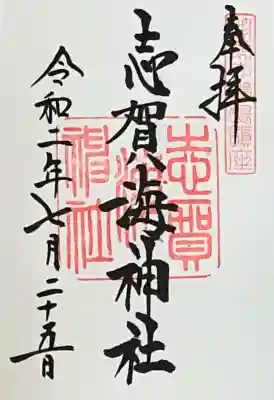 奉拝
志賀海神社
志賀海神社
令和二年七月二十五日